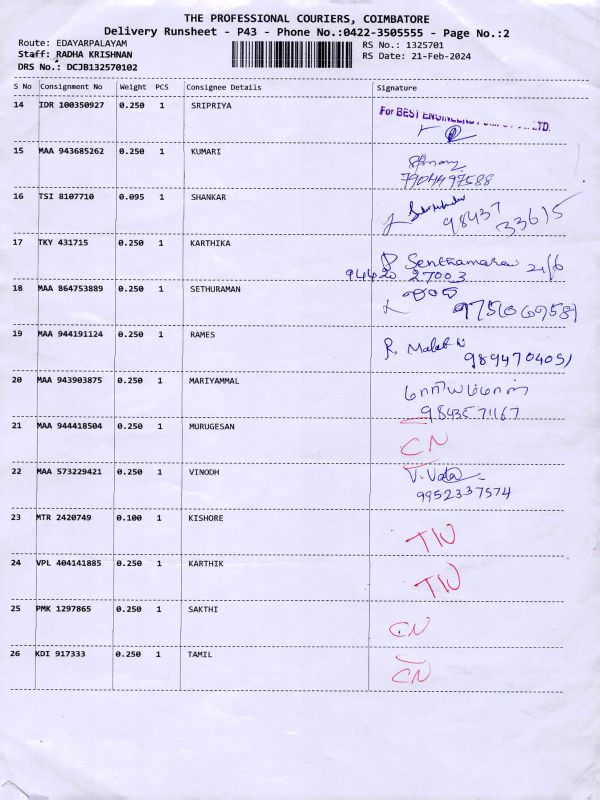 THE PROFESSIONAL COURIERS, COIMBATORE
Delivery Runsheet - P43 - Phone No.:0422-3505555 - Page No.:2
Route: EDAYARPALAYAM RS No.: 1325701
Staff: RADHA KRISHNAN RS Date: 21-Feb-2024
DRS No.: DCJB132570102
S No Consignment No Weight PCS Consignee Details Signature
14 IDR 100350927 0.250 1 SRIPRIYA
For BEST
LTD.
15 MAA 943685262 0.250 1 KUMARI
7904497588
16 TSI 8107710 0.095 1 SHANKAR
98437
33615
17 TKY 431715 0.250 1 KARTHIKA
94420 27003
18 MAA 864753889 0.250 1 SETHURAMAN
19 MAA 944191124 0.250 1 RAMES
R.
9894704051
20 MAA 943903875 0.250 1 MARIYAMMAL
மாரியம்மாள்
9843571167
21 MAA 944418504 0.250 1 MURUGESAN
CN
22 MAA 573229421 0.250 1 VINODH
9952337574
23 MTR 2420749 0.100 1 KISHORE
24 VPL 404141885 0.250 1 KARTHIK
25 PMK 1297865 0.250 1 SAKTHI
CN
26 KDI 917333 0.250 1 TAMIL
CN